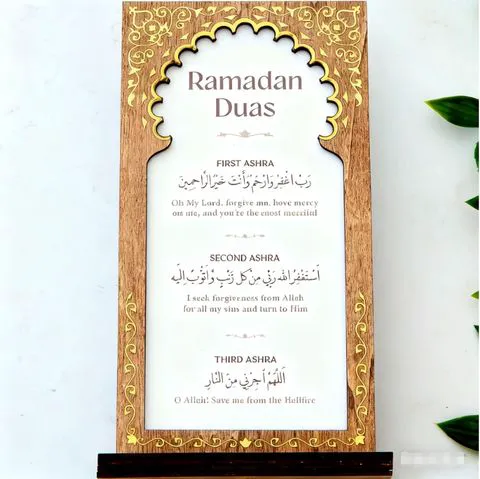 Ramadan
Duas
FIRST ASHRA
رَبِّ اغْفِرْ وَارْحَمْ وَأَنْتَ خَيْرُ الرَّاحِمِينَ
Oh My Lord, forgive me, have mercy
on me, and you're the most merciful
SECOND ASHRA
اَسْتَغْفِرُ اللهَ رَبِّي مِنْ كُلِّ ذَنْبٍ وَأَتُوبُ إِلَيْهِ
I seek forgiveness from Allah
for all my sins and turn to Him
THIRD ASHRA
اَللَّهُمَّ أَجِرْنِي مِنَ النَّارِ
O Allah! Save me from the Hellfire